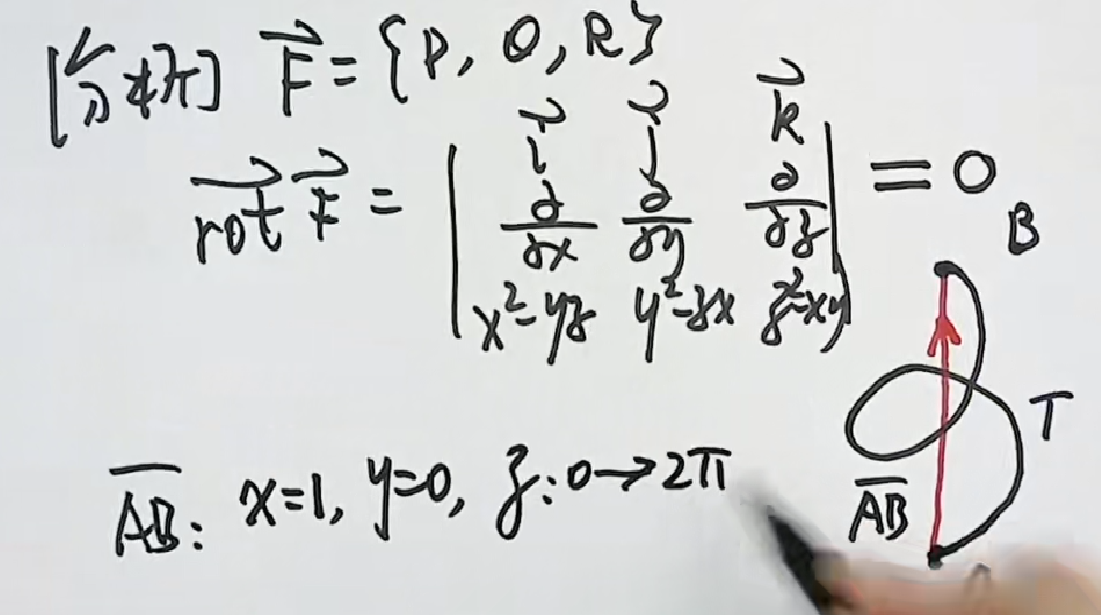 [分析] F⃗ = {P, Q, R}
rot F⃗ = | i⃗ j⃗ k⃗ | = 0
∂/∂x ∂/∂y ∂/∂z
x²-yz y²-zx z²-xy
B
Γ
AB
AB: x=1, y=0, z: 0→2π